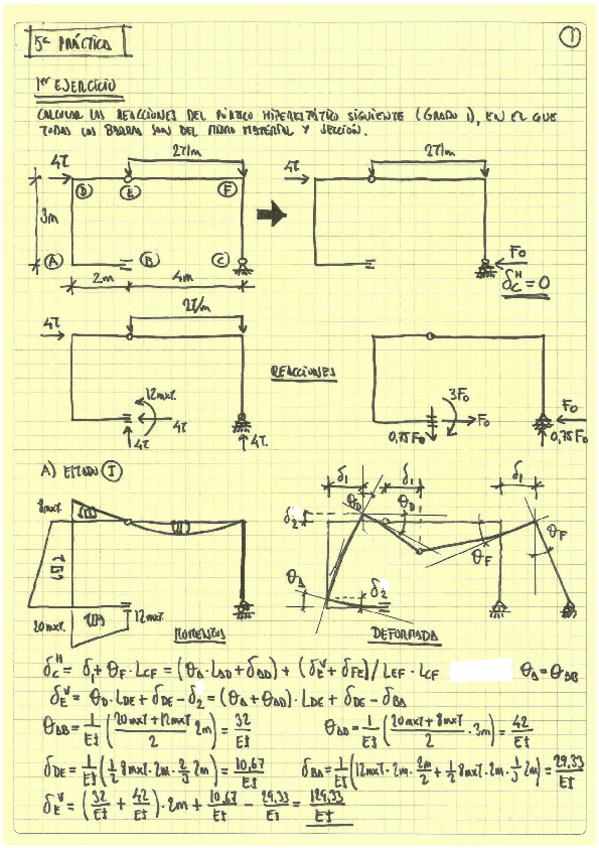 5ª PRÁCTICA
1
1er EJERCICIO
CALCULAR LAS REACCIONES DEL PÓRTICO HIPERESTÁTICO SIGUIENTE (GRADO 1), EN EL QUE
TODAS LAS BARRAS SON DEL MISMO MATERIAL Y SECCIÓN.
4T 2T/m 4T 2T/m
D E F
3m
A B C F₀
2m 4m δcᴴ = 0
4T 2T/m
REACCIONES
12mxT. 4T 3F₀ F₀ F₀
4T 4T. 0,75F₀ 0,75F₀
A) ESTADO I
8mxT. δ₁ δ₁ δ₁
δ₂ θD θD θF θF
θA δ₂
20mxT. 12mxT.
MOMENTOS DEFORMADA
δcᴴ = δ₁ + θF · LCF = (θA · LAD + δAD) + (δEⱽ + δFE) / LEF · LCF θA = θAB
δEⱽ = θD · LDE + δDE - δ₂ = (θA + θAD) · LDE + δDE - δBA
θAB = 1/EI (20mxT + 12mxT / 2 · 2m) = 32/EI θAD = 1/EI (20mxT + 8mxT / 2 · 3m) = 42/EI
δDE = 1/EI (1/2 8mxT · 2m · 2/3 2m) = 10,67/EI δBA = 1/EI (12mxT · 2m · 2m/2 + 1/2 8mxT · 2m · 1/3 2m) = 29,33/EI
δEⱽ = (32/EI + 42/EI) · 2m + 10,67/EI - 29,33/EI = 129,33/EI